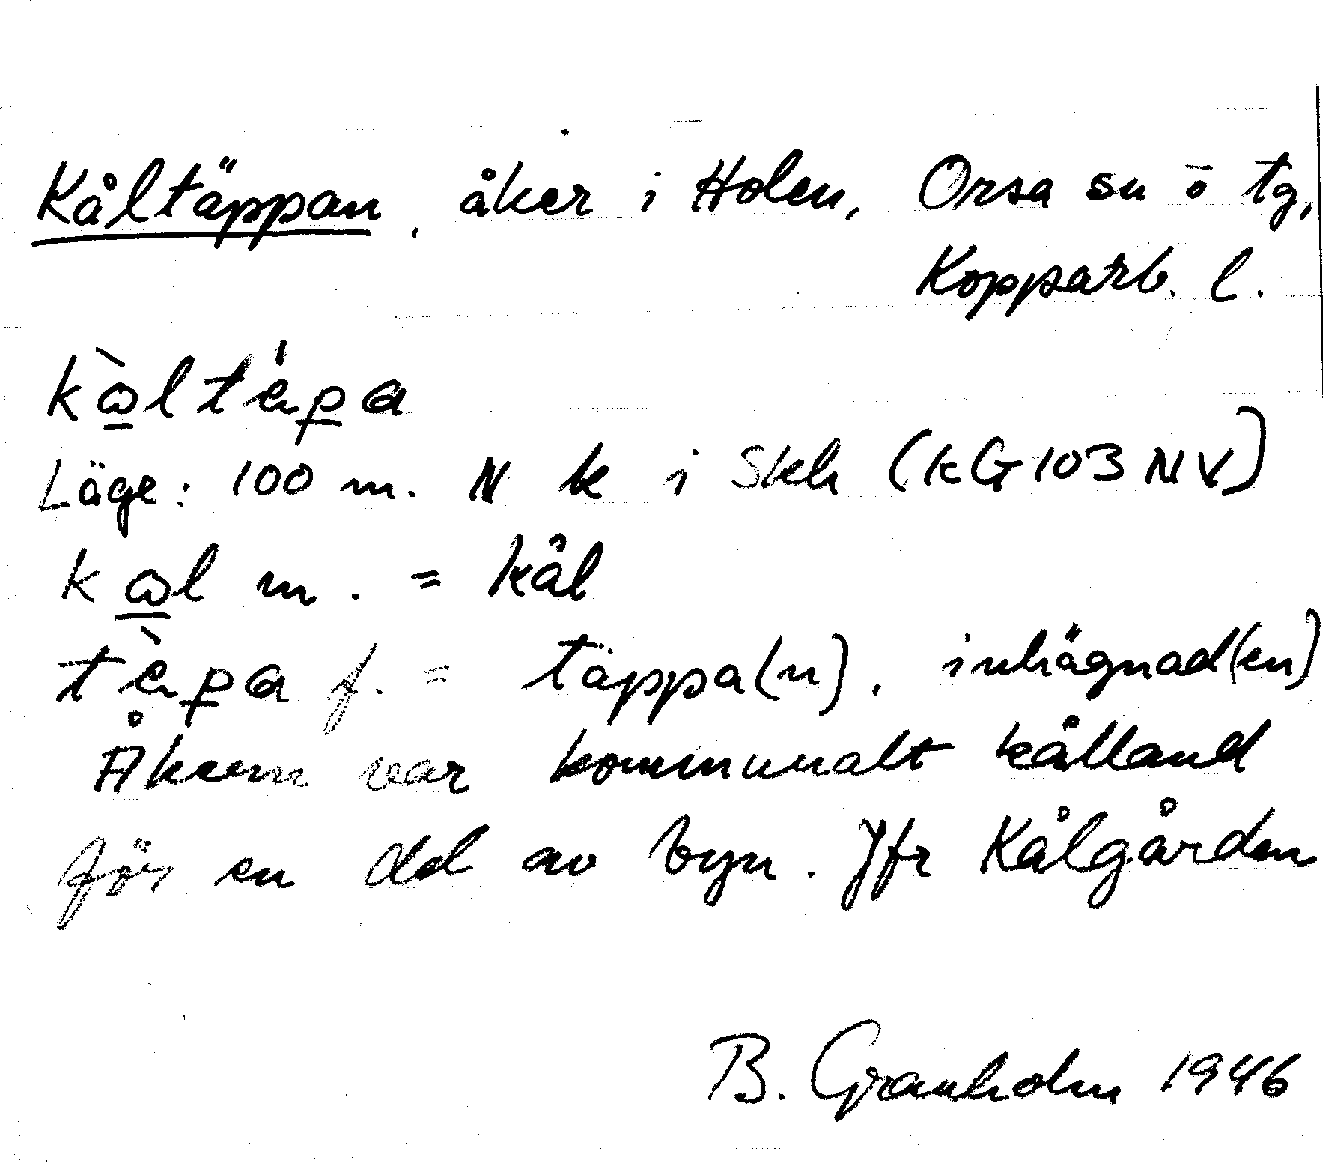 Kåltäppan, åker i Holen, Orsa sn ö tg,
Kopparb. l.
Läge: 100 m. N k i Skh (kG103NV)
m. = kål
f. = täppa(n), inhägnad(en)
Åkern var kommunalt kålland
för en del av byn. Jfr Kålgården
B. Granholm 1946